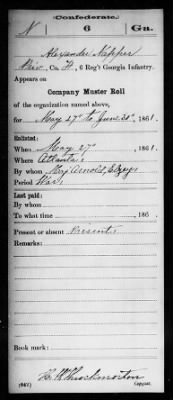 Confederate.
N 6 Ga.
Alexander Napper
Priv, Co. H, 6 Reg't Georgia Infantry.
Appears on
Company Muster Roll
of the organization named above,
for May 27 to June 30, 1861.
Enlisted:
When May 27, 1861.
Where Atlanta
By whom Maj Arnold,
Period War
Last paid:
By whom
To what time , 186 .
Present or absent Present
Remarks:
Book mark:
(642)
Copyist.